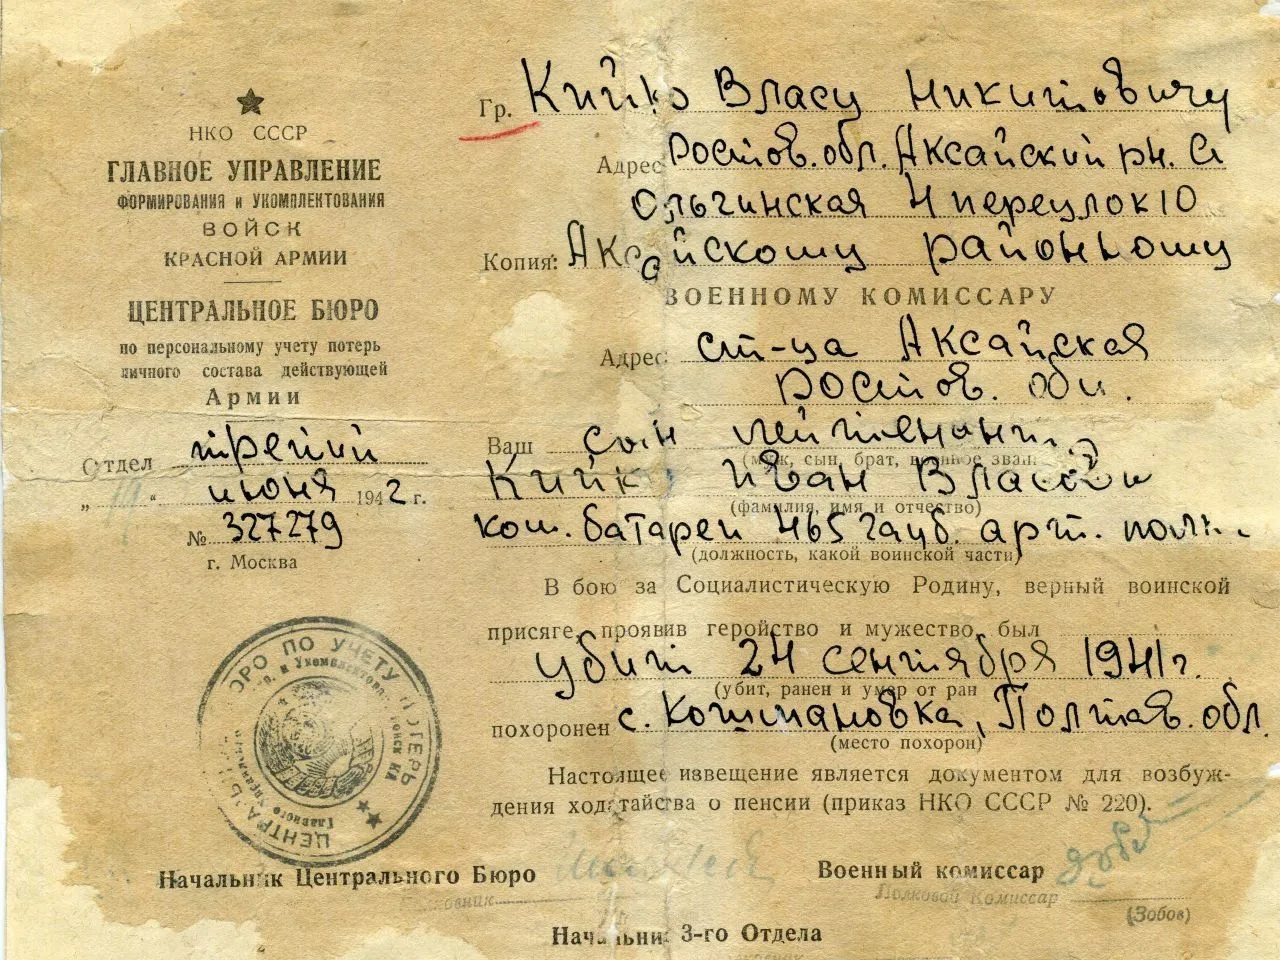 НКО СССР
ГЛАВНОЕ УПРАВЛЕНИЕ
ФОРМИРОВАНИЯ и УКОМПЛЕКТОВАНИЯ
ВОЙСК
КРАСНОЙ АРМИИ
ЦЕНТРАЛЬНОЕ БЮРО
по персональному учету потерь
личного состава действующей
Армии
Отдел третий
„ “ июня 1942 г.
№ 327279
г. Москва
Гр. Кийко Власу Никитовичу
Адрес Ростов. обл. Аксайский рн. Ст
Ольгинская 4 переулок 10
Копия: Аксайскому районному
ВОЕННОМУ КОМИССАРУ
Адрес: ст-ца Аксайская
Ростов. обл.
Ваш сын лейтенант
(муж, сын, брат, военное зван
Кийко Иван Власович
(фамилия, имя и отчество)
ком. батареи 465 гауб. арт. полк
(должность, какой воинской части)
В бою за Социалистическую Родину, верный воинской
присяге, проявив геройство и мужество, был
убит 24 сентября 1941 г.
(убит, ранен и умер от ран
похоронен с. Кошмановка, Полтав. обл.
(место похорон)
Настоящее извещение является документом для возбуж-
дения ходатайства о пенсии (приказ НКО СССР № 220).
Начальник Центрального Бюро
Военный комиссар
Полковой Комиссар
(Зобов)
Начальник 3-го Отдела